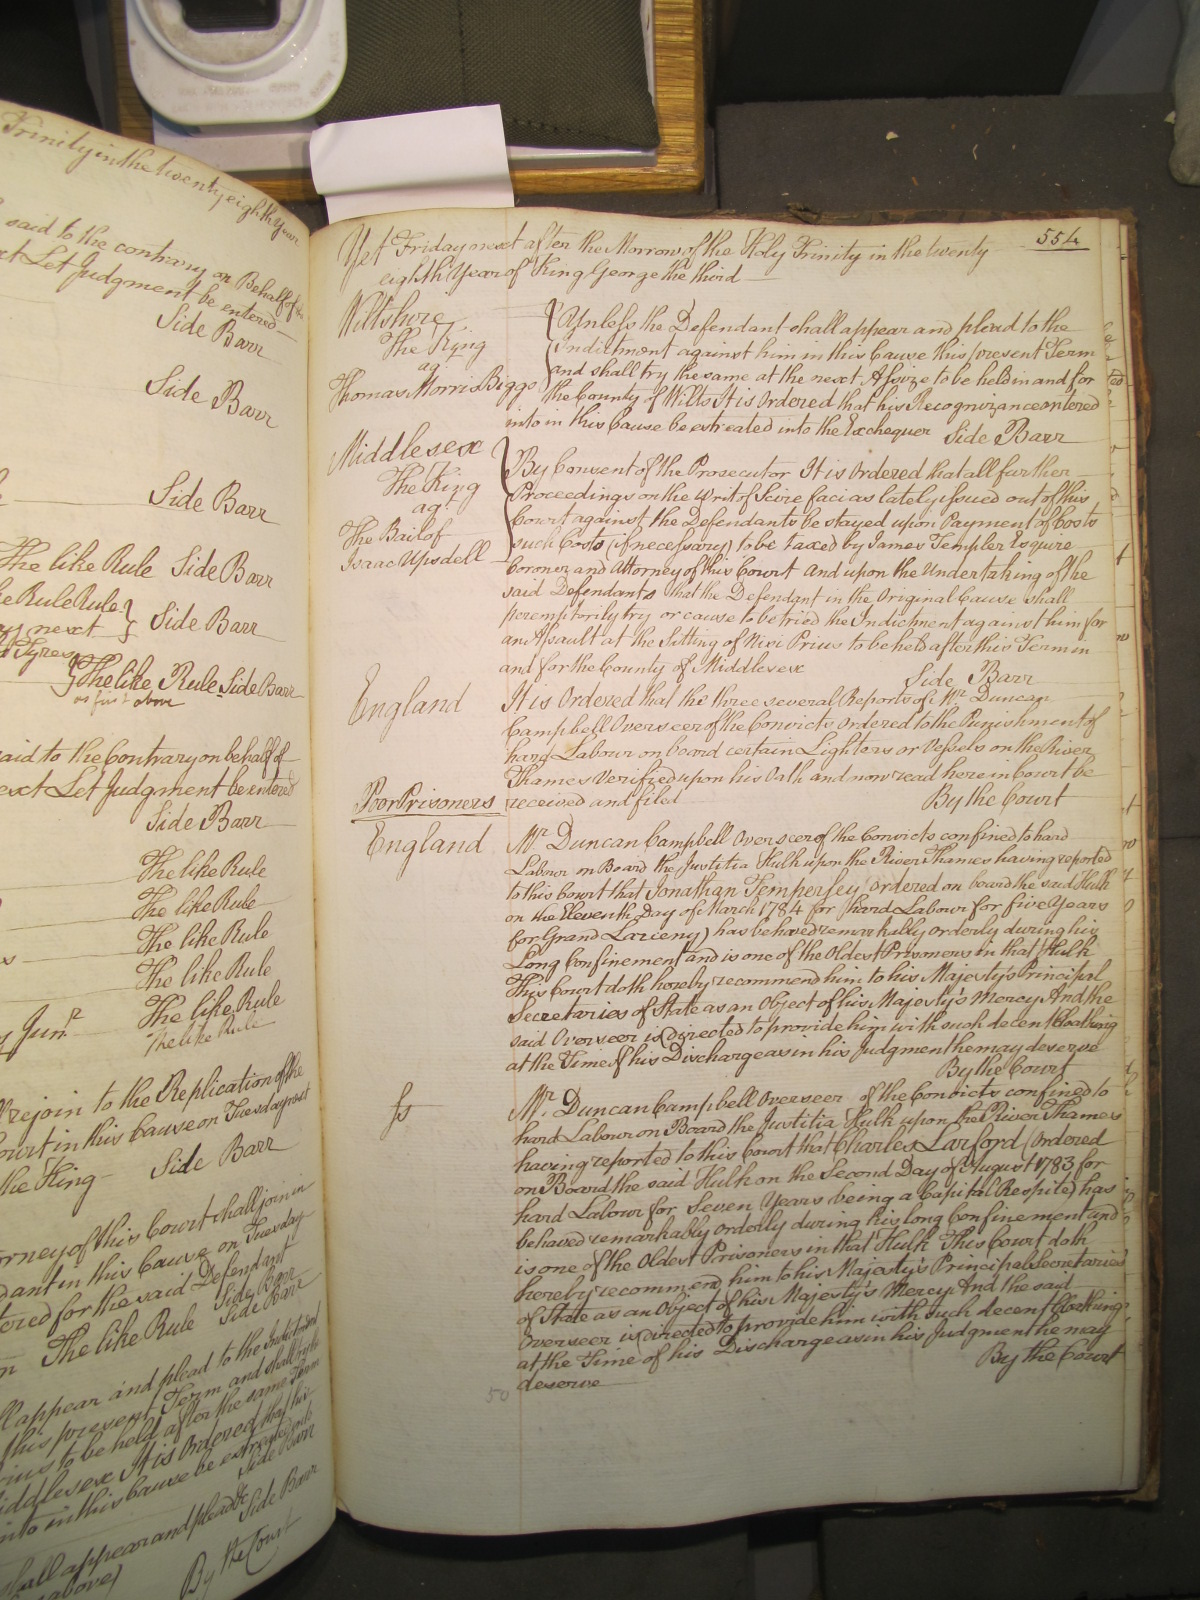 Trinity in the twenty eighth Year
said to the contrary on Behalf of the
Let Judgment be entered
Side Barr
Side Barr
Side Barr
The like Rule Side Barr
Rule Rule } Side Barr
next
Tyres } The like Rule Side Barr
as first above
said to the Contrary on behalf of
next Let Judgment be entered
Side Barr
The like Rule
The like Rule
The like Rule
The like Rule
Junr. The like Rule
The like Rule
rejoin to the Replication of the
Court in this Cause on Tuesday next
the King Side Barr
Attorney of this Court shall join in
in this Cause on Tuesday
for the said Defendant
Side Barr
The like Rule Side Barr
appear and plead to the Indictment
this present Term and shall
to be held after the same Term
Middlesex It is Ordered that his
into in this Cause be estreated
Side Barr
shall appear and plead &c Side Barr
above) By the Court
554
Yet Friday next after the Morrow of the Holy Trinity in the twenty
eighth Year of King George the third
Wiltshire
The King
agt
Thomas Morris Biggs
Unless the Defendant shall appear and plead to the
Indictment against him in this Cause this present Term
and shall try the same at the next Assize to be held in and for
the County of Wilts It is Ordered that his Recognizance entered
into in this Cause be estreated into the Exchequer Side Barr
Middlesex
The King
agt
The Bail of
Isaac Upsdell
By Consent of the Prosecutor It is Ordered that all further
Proceedings on the Writ of Scire facias lately issued out of this
Court against the Defendants be stayed upon Payment of Costs
such Costs (if necessary) to be taxed by James Templer Esquire
Coroner and Attorney of this Court and upon the Undertaking of the
said Defendants that the Defendant in the Original Cause shall
peremptorily try or cause to be tried the Indictment against him for
an Assault at the Sitting of Nisi Prius to be held after this Term in
and for the County of Middlesex Side Barr
England It is Ordered that the three several Reports of Mr. Duncan
Campbell Overseer of the Convicts Ordered to the Punishment of
hard Labour on board certain Lighters or Vessels on the River
Thames Verified upon his Oath and now read here in Court be
received and filed By the Court
Poor Prisoners
England Mr. Duncan Campbell Overseer of the Convicts confined to hard
Labour on Board the Justitia Hulk upon the River Thames having reported
to this Court that Jonathan Temperley (ordered on board the said Hulk
on the Eleventh Day of March 1784 for hard Labour for five Years
for Grand Larceny) has behaved remarkably orderly during his
Long Confinement and is one of the Oldest Prisoners in that Hulk
This Court doth hereby recommend him to his Majesty's Principal
Secretaries of State as an Object of his Majesty's Mercy And the
said Overseer is directed to provide him with such decent Cloathing
at the Time of his Discharge as in his Judgment he may deserve
By the Court
Mr. Duncan Campbell Overseer of the Convicts confined to
hard Labour on Board the Justitia Hulk upon the River Thames
having reported to this Court that Charles Larford (Ordered
on Board the said Hulk on the Second Day of August 1783 for
hard Labour for Seven Years being a Capital Respite) has
behaved remarkably orderly during his long Confinement and
is one of the Oldest Prisoners in that Hulk This Court doth
hereby recommend him to his Majesty's Principal Secretaries
of State as an Object of his Majesty's Mercy And the said
Overseer is directed to provide him with such decent Cloathing
at the Time of his Discharge as in his Judgment he may
deserve By the Court
50